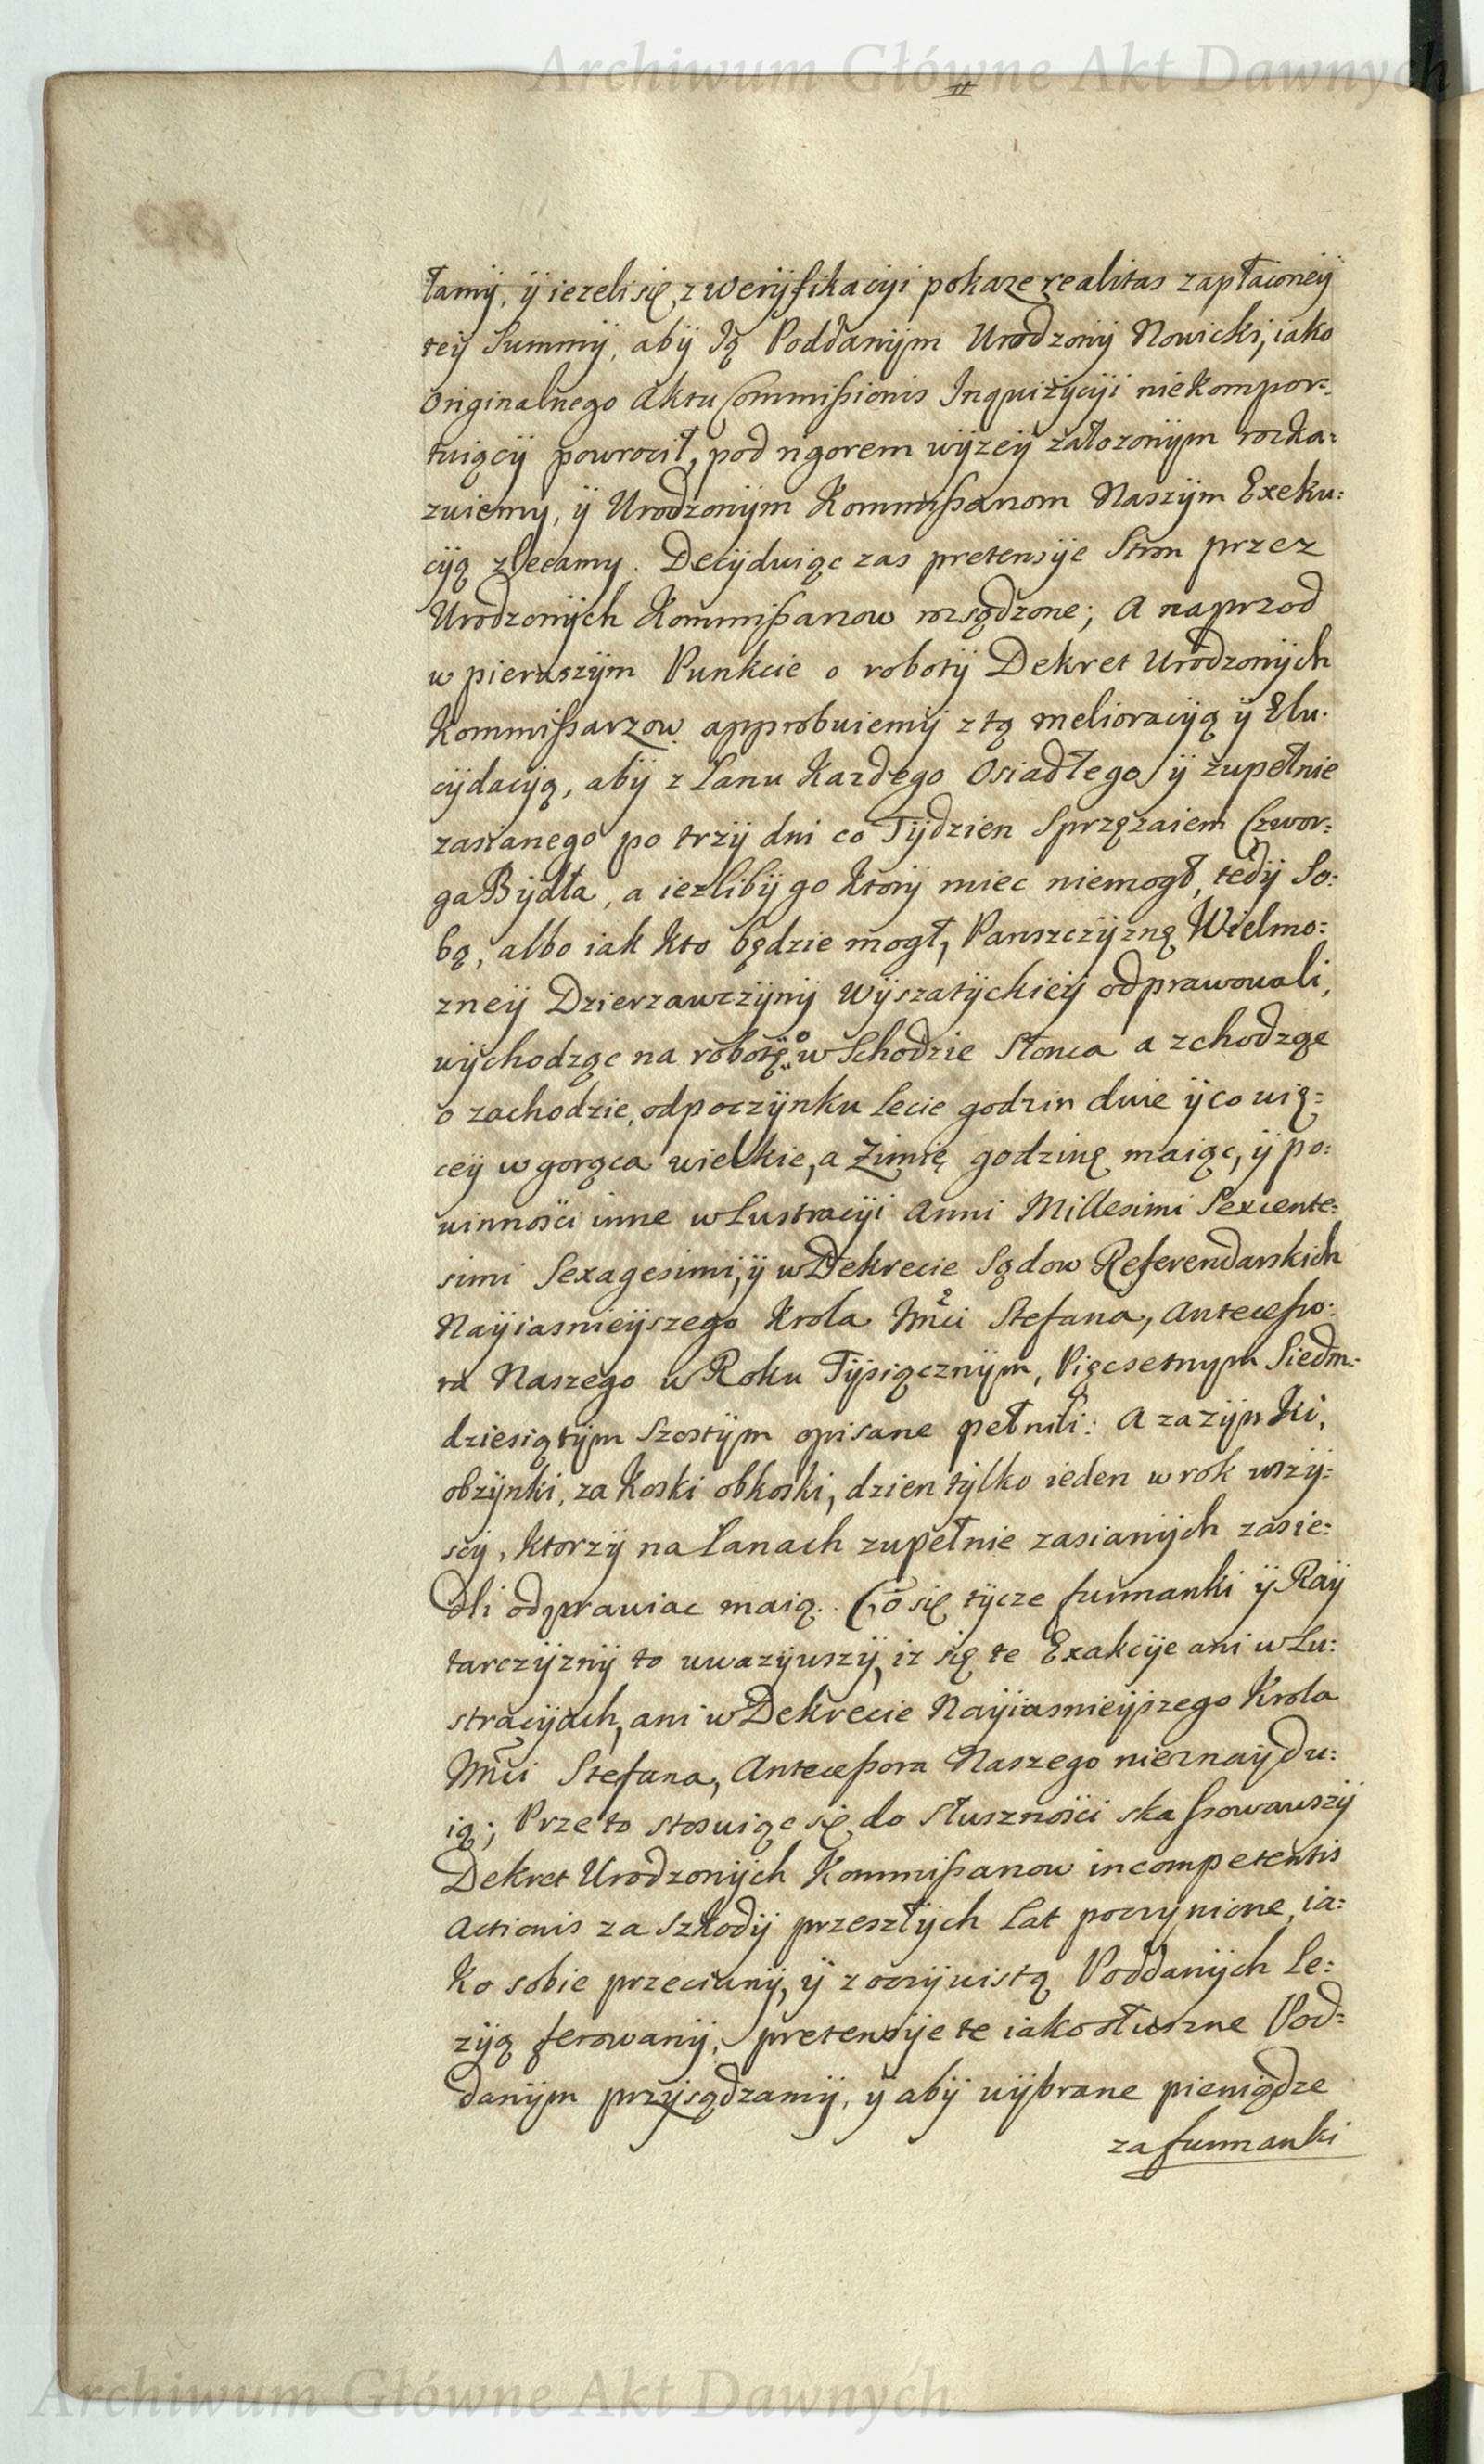 Archiwum Główne Akt Dawnych
łamÿ, ÿ iezeli się z werÿfikacÿi pokaze realitas zapłaconeÿ
teÿ Summÿ, abÿ Ią Poddanÿm Urodzonÿ Nowicki, iako
Originalnego Aktu Commißionis Inquizÿcÿi niekompor=
tuiącÿ powrocił, pod rigorem wÿzeÿ załozonÿm rozka=
zuiemy, ÿ Urodzonÿm Kommißarzom Naszÿm Exeku=
cÿą zlecamy. Decÿduiąc zas pretensÿe Stron przez
Urodzonÿch Kommißarzow rozsądzone; A naprzod
w pierwszÿm Punkcie o robotÿ Dekret Urodzonÿch
Kommißarzow approbuiemÿ z tą melioracÿą ÿ Elu=
cÿdacÿą, abÿ z Łanu Kazdego Osiadłego ÿ zupełnie
zasianego po trzÿ dni co Tÿdzien Sprzęzaiem Czwor=
ga Bÿdła, a iezlibÿ go Ktorÿ miec niemogł, tedÿ So=
bą, albo iak Kto będzie mogł, Panszczÿznę Wielmo=
zneÿ Dzierzawczÿnÿ Wÿszatÿckieÿ odprawowali,
wÿchodząc na robotę o wschodzie Słonca a zchodząc
o zachodzie, odpoczÿnku lecie godzin dwie ÿ co wię=
ceÿ w gorąca wielkie, a Zimie godzinę maiąc, ÿ po=
winności inne w Lustracÿi Anni Millesimi Sexcente=
simi Sexagesimi, ÿ w Dekrecie Sądow Referendarskich
Naÿiasnieÿszego Krola Jmci Stefana, Anteceßo=
ra Naszego w Roku Tÿsiącznÿm, Pięcsetnym Siedm=
dziesiątÿm Szostÿm opisane pełnili: A zazÿnki,
obzÿnki, zakoski obkoski, dzien tÿlko ieden w rok wszÿ=
scÿ, Ktorzÿ na Łanach zupełnie zasianÿch zasie=
dli odprawiac maią. Co się tÿcze furmanki ÿ Raÿ
tarczÿznÿ to uwazÿwszÿ, iz się te Exakcÿe ani w Lu=
stracÿach, ani w Dekrecie Naÿiasnieÿszego Krola
Jmci Stefana, Anteceßora Naszego nieznaÿdu=
ią; Przeto stosuiąc się do Słuszności skaßowawszÿ
Dekret Urodzonÿch Kommißarzow incompetentis
Actionis za Szkodÿ przeszłÿch Lat poczÿnione, ia=
ko sobie przeciwnÿ, ÿ z oczÿwistą Poddanÿch le=
zÿą ferowanÿ, pretensÿe te iako słuszne Pod=
danÿm przÿsądzamÿ, ÿ abÿ wÿbrane pieniądze
za furmanki
Archiwum Główne Akt Dawnych